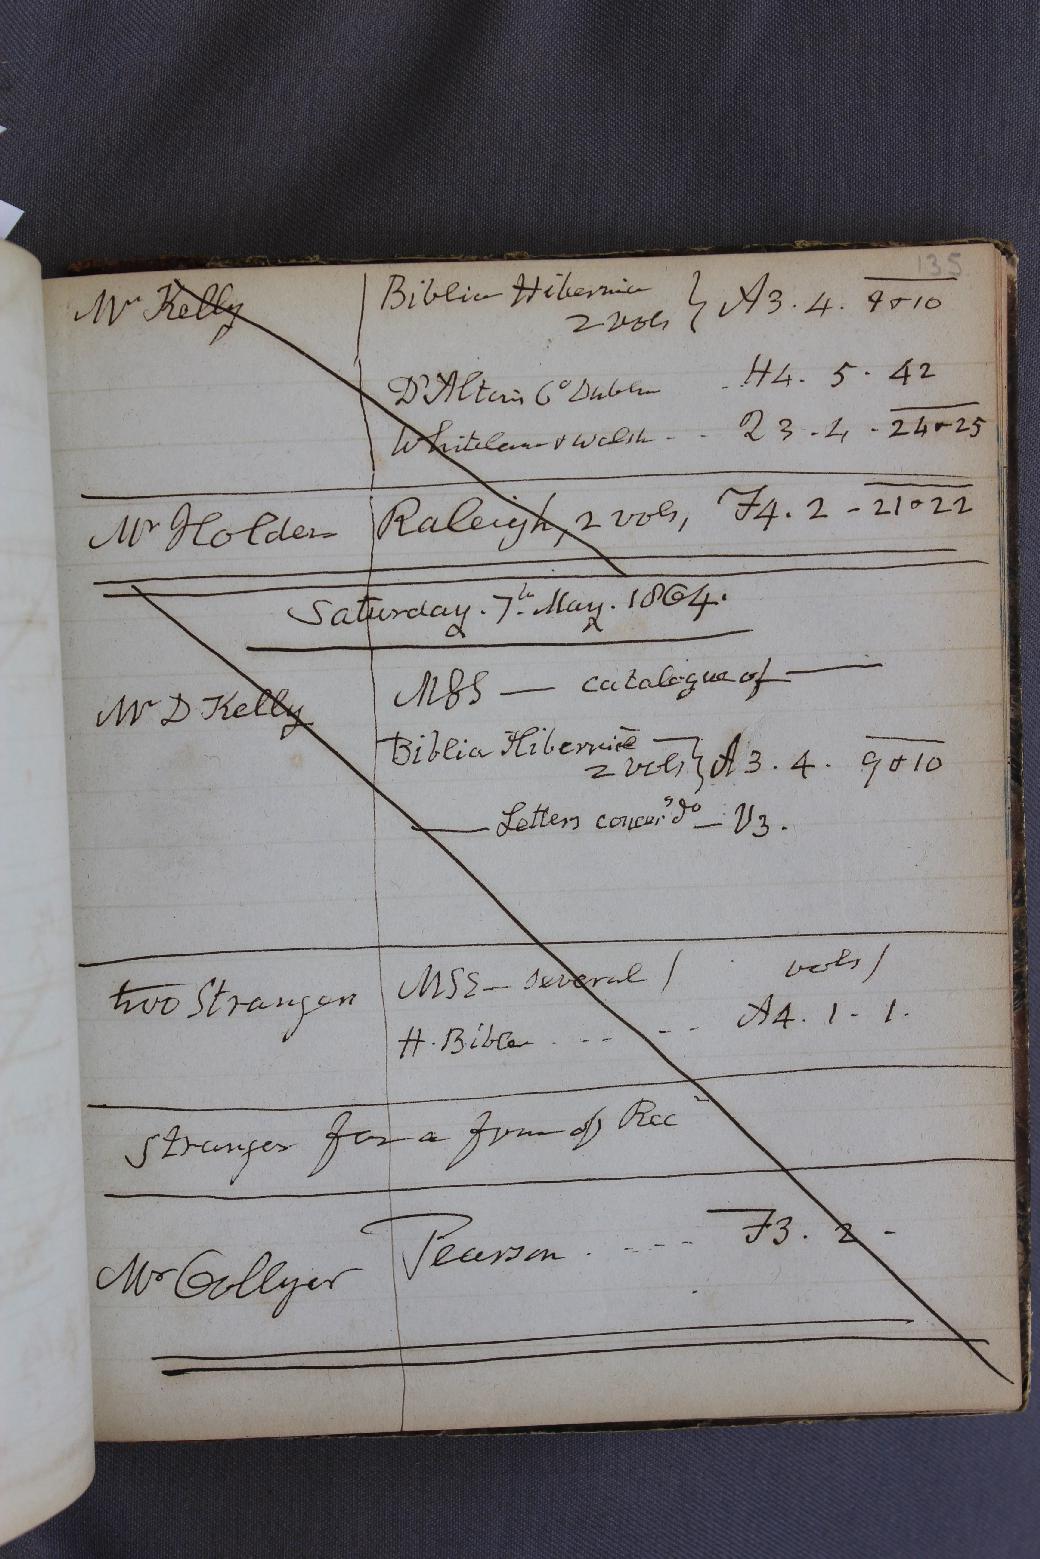 135
Mr Kelly Biblia Hibernia 2 vols } A3. 4. 9 & 10
D'Altons Co Dublin - H4. 5. 42
Whitelaw & Walsh - - Q3. 4. - 24 & 25
Mr Holden Raleigh, 2 vols, F4. 2 - 21 & 22
Saturday. 7th May. 1864.
Mr D Kelly MSS — catalogue of —
Biblia Hibernice 2 vols } A3. 4. 9 & 10
— Letters concerg do — V3.
two Strangers MSS - several / vols /
H. Bible . -- -- A4. 1. 1.
Stranger for a form of Rec
Mr Collyer Pearson . ---- F3. 2 -